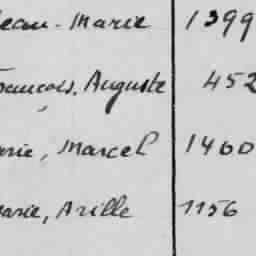 Jean-Marie 1399
François, Auguste 452
Marie, Marcel 1400
Marie, Arille 1156